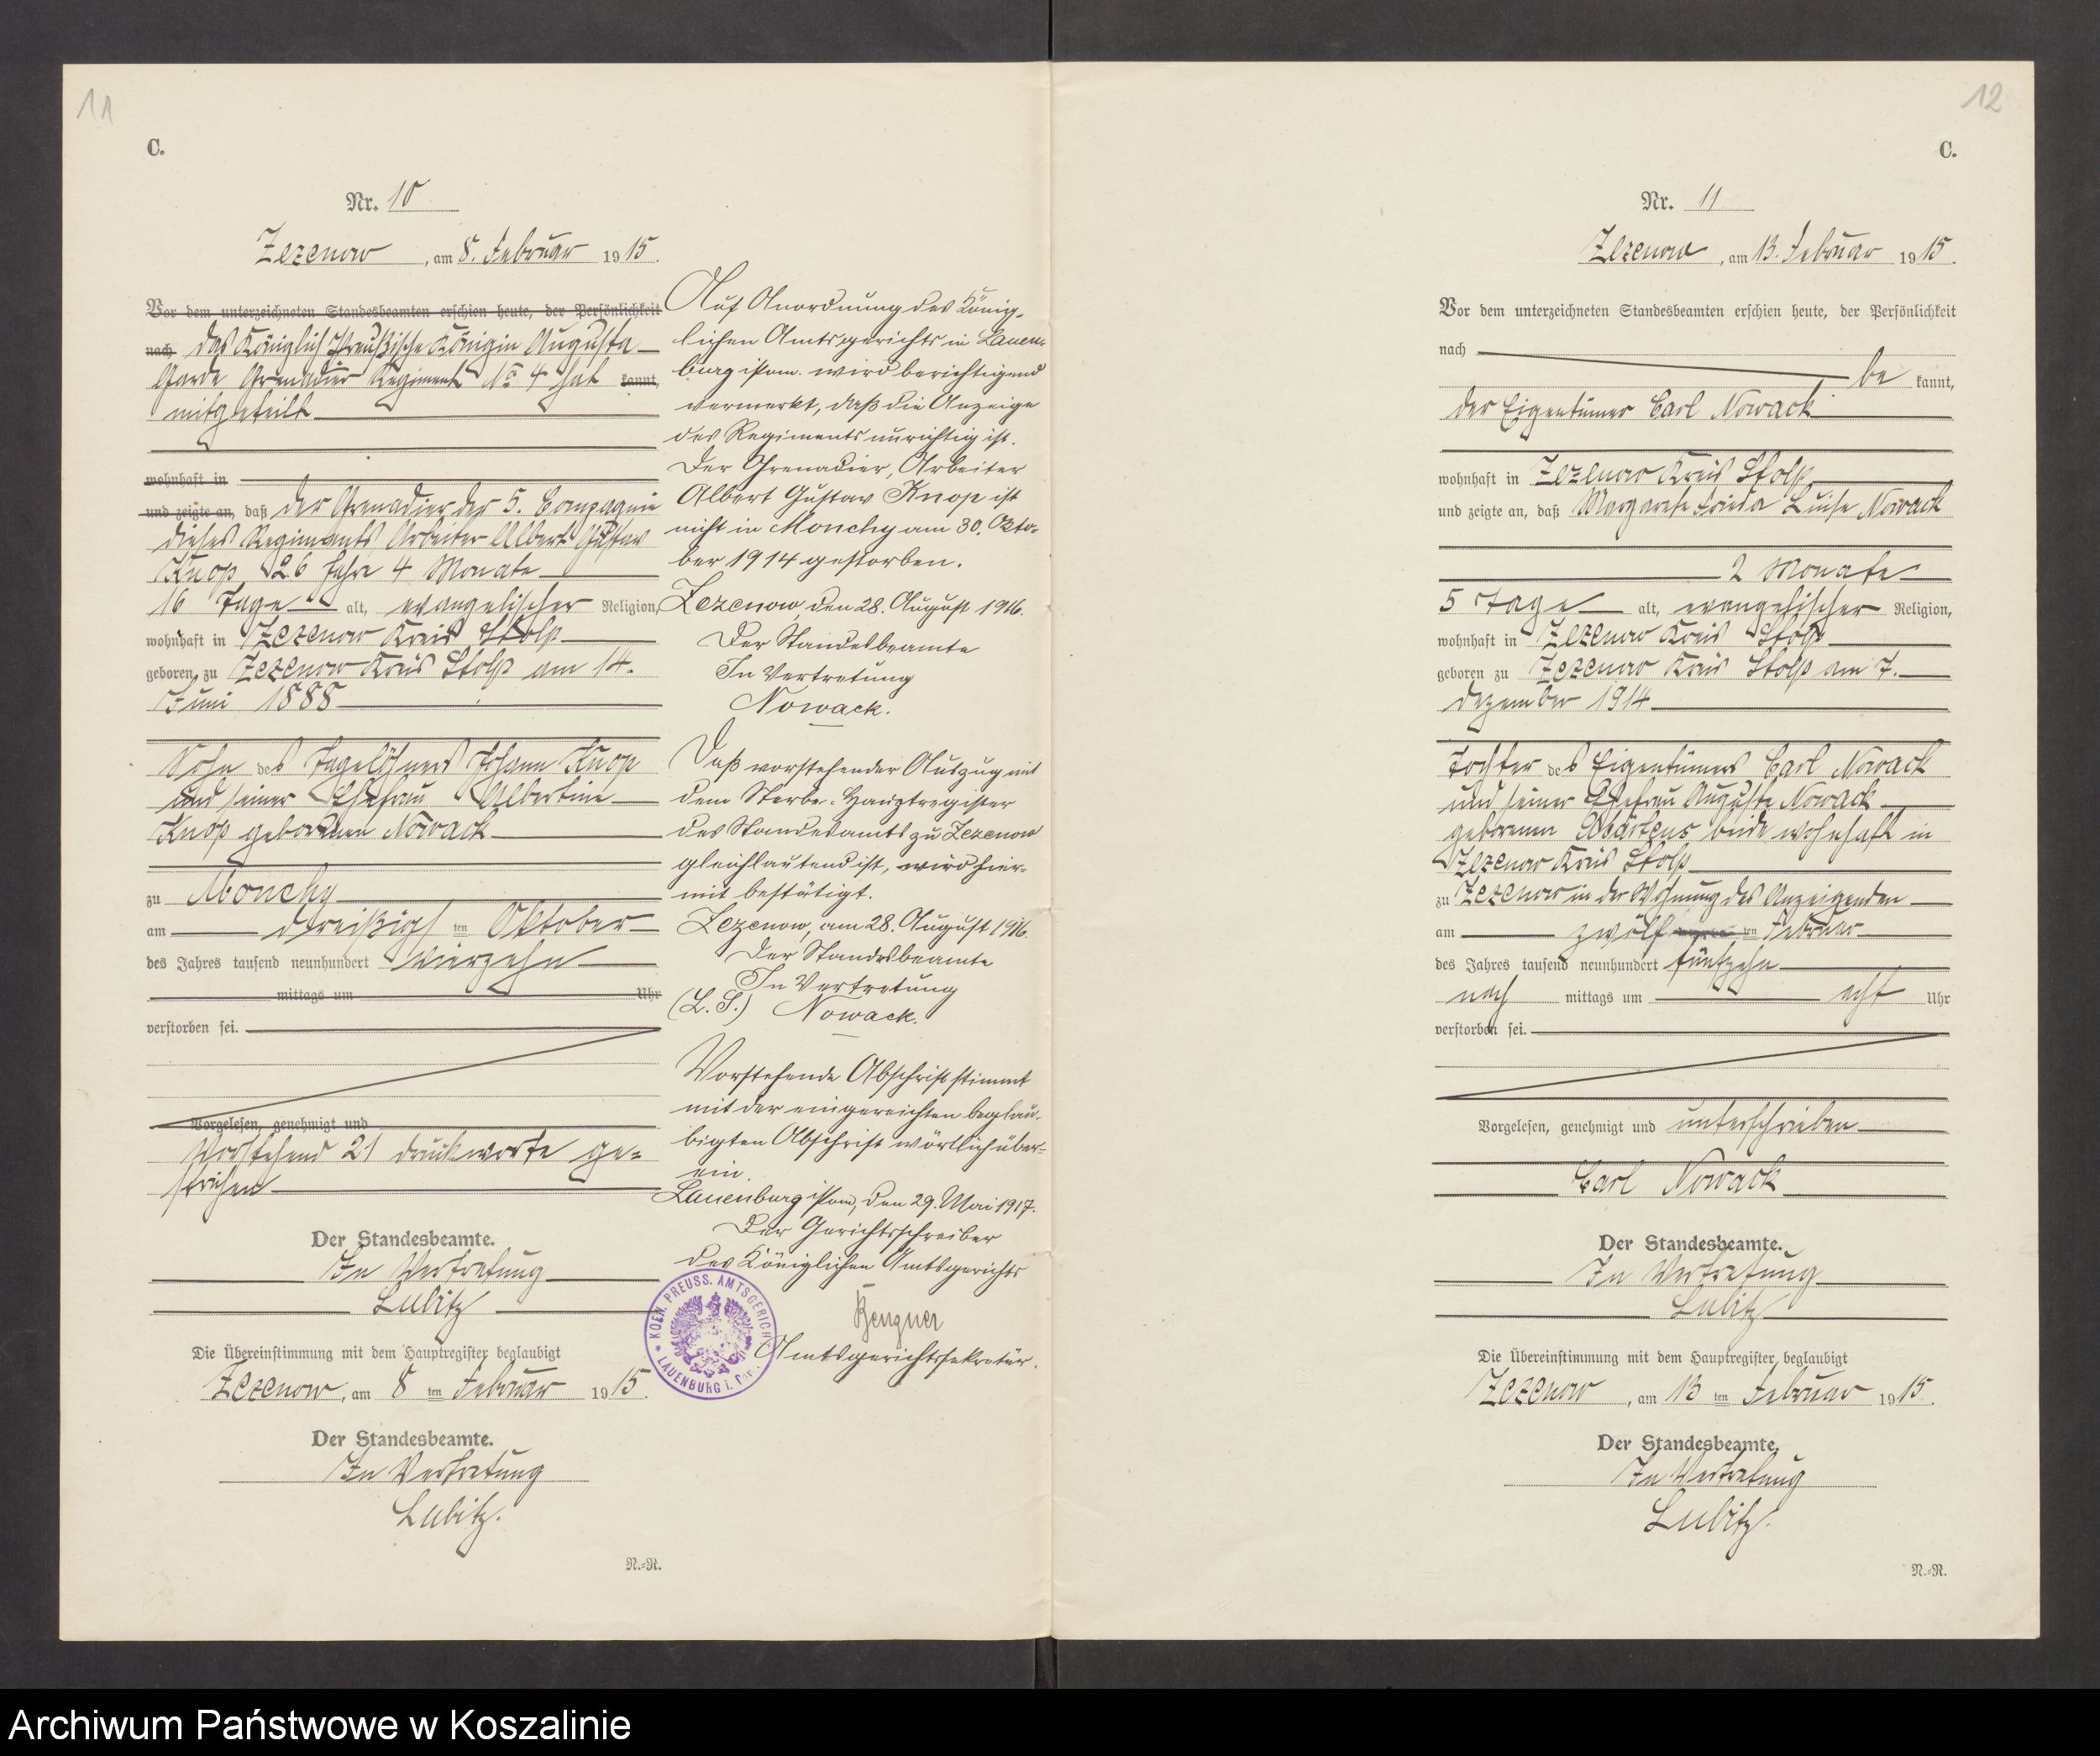 11
C.
Nr. 10
Zezenow, am 8. Februar 1915.
Vor dem unterzeichneten Standesbeamten erschien heute, der Persönlichkeit
nach das Königlich Preußische Königin Augusta
Garde Grenadier Regiment No 4 hat kannt,
mitgeteilt
wohnhaft in
und zeigte an, daß der Grenadier der 5. Compagnie
dieses Regiments, Arbeiter Albert Gustav
Knop, 26 Jahre 4 Monate
16 Tage alt, evangelischer Religion,
wohnhaft in Zezenow Kreis Stolp
geboren zu Zezenow Kreis Stolp am 14.
Juni 1888
Sohn des Tagelöhners Johann Knop
und seiner Ehefrau Albertine
Knop geborenen Nowack
zu Monchy
am dreißigsten Oktober
des Jahres tausend neunhundert vierzehn
mittags um Uhr
verstorben sei.
Vorgelesen, genehmigt und
Vorstehend 21 Druckworte ge-
strichen
Der Standesbeamte.
In Vertretung
Lubitz
Die Übereinstimmung mit dem Hauptregister beglaubigt
Zezenow, am 8ten Februar 1915.
Der Standesbeamte.
In Vertretung
Lubitz.
N.-R.
Auf Anordnung des König-
lichen Amtsgerichts in Lauen-
burg i/Pom. wird berichtigend
vermerkt, daß die Anzeige
des Regiments unrichtig ist.
Der Grenadier, Arbeiter
Albert Gustav Knop ist
nicht in Monchy am 30. Okto-
ber 1914 gestorben.
Zezenow, den 28. August 1916.
Der Standesbeamte
In Vertretung
Nowack.
Daß vorstehender Auszug mit
dem Sterbe-Hauptregister
des Standesamts zu Zezenow
gleichlautend ist, wird hier-
mit bestätigt.
Zezenow, am 28. August 1916.
Der Standesbeamte
In Vertretung
(L. S.) Nowack.
Vorstehende Abschrift stimmt
mit der eingereichten beglau-
bigten Abschrift wörtlich über-
ein.
Lauenburg i/Pom, den 29. Mai 1917.
Der Gerichtsschreiber
des Königlichen Amtsgerichts
Amtsgerichtssekretär.
KOEN. PREUSS. AMTSGERICHT
LAUENBURG i. Pom.
12
C.
Nr. 11
Zezenow, am 13. Februar 1915.
Vor dem unterzeichneten Standesbeamten erschien heute, der Persönlichkeit
nach be kannt,
der Eigentümer Carl Nowack
wohnhaft in Zezenow Kreis Stolp
und zeigte an, daß Margarete Frieda Luise Nowack
2 Monate
5 Tage alt, evangelischer Religion,
wohnhaft in Zezenow Kreis Stolp
geboren zu Zezenow Kreis Stolp am 7.
Dezember 1914
Tochter des Eigentümers Carl Nowack
und seiner Ehefrau Auguste Nowack
geborenen beide wohnhaft in
Zezenow Kreis Stolp
zu Zezenow in der Wohnung des Anzeigenden
am zwölften Februar
des Jahres tausend neunhundert fünfzehn
nach mittags um acht Uhr
verstorben sei.
Vorgelesen, genehmigt und unterschrieben
Carl Nowack
Der Standesbeamte.
In Vertretung
Lubitz
Die Übereinstimmung mit dem Hauptregister beglaubigt
Zezenow, am 13ten Februar 1915.
Der Standesbeamte.
In Vertretung
Lubitz.
N.-R.
Archiwum Państwowe w Koszalinie